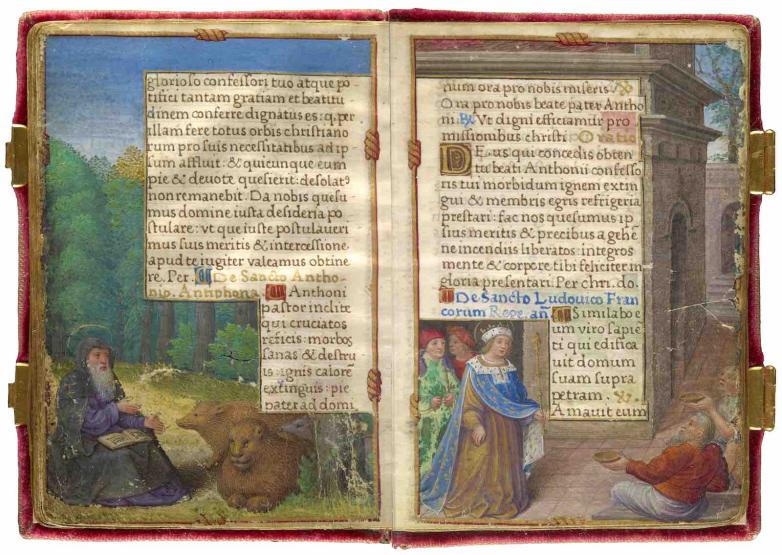 glorioso confessori tuo atque po-
tifici tantam gratiam et beatitu
dinem conferre dignatus es: q, per
illam fere totus orbis christiano
rum pro suis necessitatibus ad ip
sum affluit: & quicunque eum
pie & devote quesierit: desolatꝰ
non remanebit. Da nobis quesu-
mus domine iusta desideria po-
stulare: vt que iuste postulaueri
mus suis meritis & intercessione
apud te iugiter valeamus obtine
re. Per. De Sancto Antho-
nio. Antiphona. Anthoni
pastor inclite
qui cruciatos
reficis: morbos
sanas & destru
is: ignis calorē
extinguis: pie
pater ad domi
num ora pro nobis miseris.
Ora pro nobis beate pater Antho
ni. ℞. Vt digni efficiamur pro
missionibus christi. Oratio
DEus qui concedis obten
tu beati Anthonii confesso
ris tui morbidum ignem extin
gui & membris egris refrigeria
prestari: fac nos quesumus ip
sius meritis & precibus a gehē
ne incendiis liberatos: integros
mente & corpore tibi feliciter in
gloria presentari. Per chri. do.
De Sancto Ludouico Fran
corum Rege. añ. Similabo e
um viro sapiē
ti qui edifica
uit domum
suam supra
petram. ℣.
Amauit eum